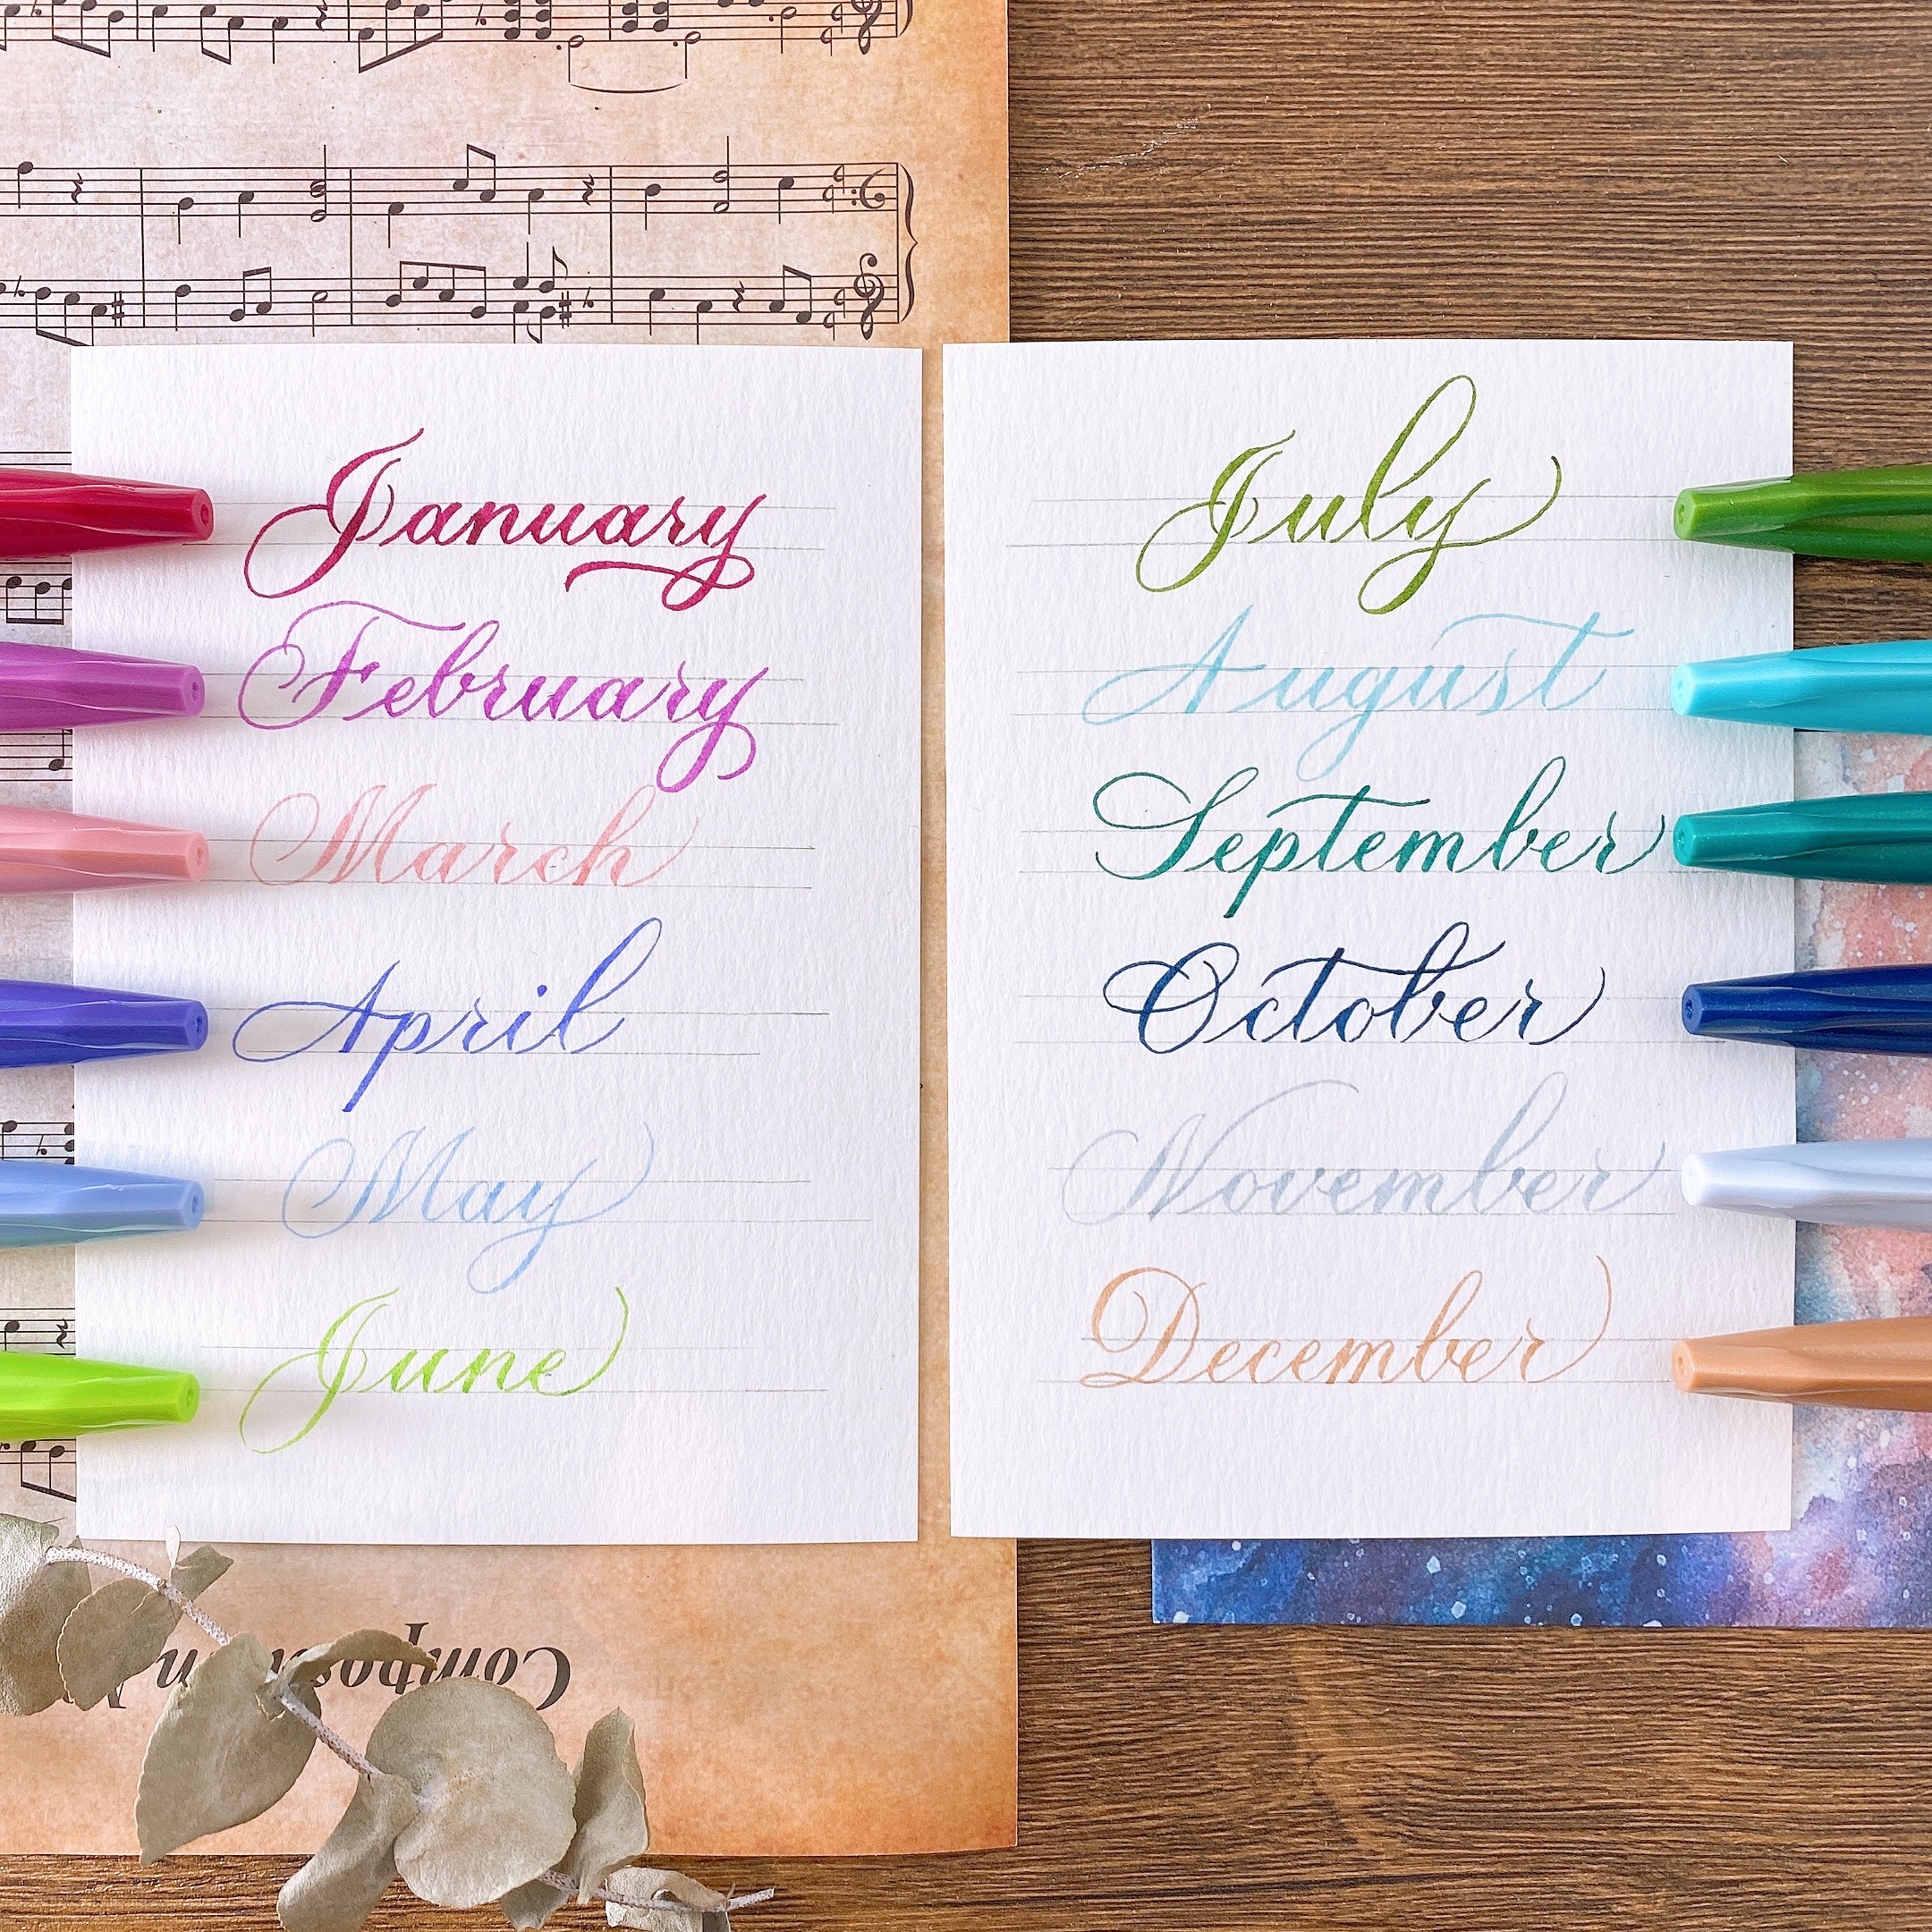 January
February
March
April
May
June
July
August
September
October
November
December